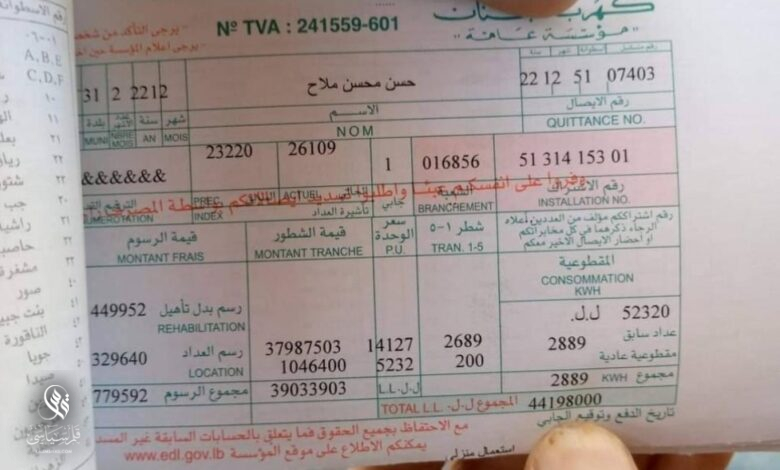 رقم الاسطوانة
٠٦-٠١
A,B,E
C,D,F
١٠
١١
٢١
٢٢
شتور
جب
راشيا
حاصبيا
مشغرة
صور
بنت جبيل
الناقورة
جويا
صيدا
كهرباء لبنان
"مؤسسة عامة"
Nº TVA : 241559-601
رقم متسلسل اسطوانة شهر سنة
22 12 51 07403
رقم الايصال
QUITTANCE NO.
حسن محسن ملاح
الاسم
NOM
31 2 2212
شهر سنة عدد الأشهر بلدة
MUNI NBRE MOIS AN MOIS
51 314 153 01
رقم الاشتراك
INSTALLATION NO.
016856
الشعبة
BRANCREMENT
1
جابي
26109
الحالي
ACTUEL
23220
السابق
PREC.
تأشيرة العداد
INDEX
&&&&&&
الترقيم
NUMEROTATION
وفروا على انفسكم عبئا واطلبوا تسديد ايصالاتكم بواسطة المصرف
رقم اشتراككم مؤلف من العددين اعلاه
الرجاء ذكرهما في كل مخابراتكم
او احضار الايصال الاخير معكم
شطر ١-٥
TRAN. 1-5
سعر الوحدة
P.U.
قيمة الشطور
MONTANT TRANCHE
قيمة الرسوم
MONTANT FRAIS
المقطوعية
CONSOMMATION
KWH
52320 ل.ل.
عداد سابق 2889
مقطوعية عادية
مجموع KWH 2889
2689 14127 37987503
200 5232 1046400
L.L.ل.ل 39033903
رسم بدل تأهيل 449952
REHABILITATION
رسم العداد 329640
LOCATION
مجموع الرسوم 779592
TOTAL L.L. المجموع ل.ل. 44198000
تاريخ الدفع وتوقيع الجابي
مع الاحتفاظ بجميع الحقوق فما يتعلق بالحسابات السابقة غير
يمكنكم الاطلاع على موقع المؤسسة www.edl.gov.lb
استعمال منزلي